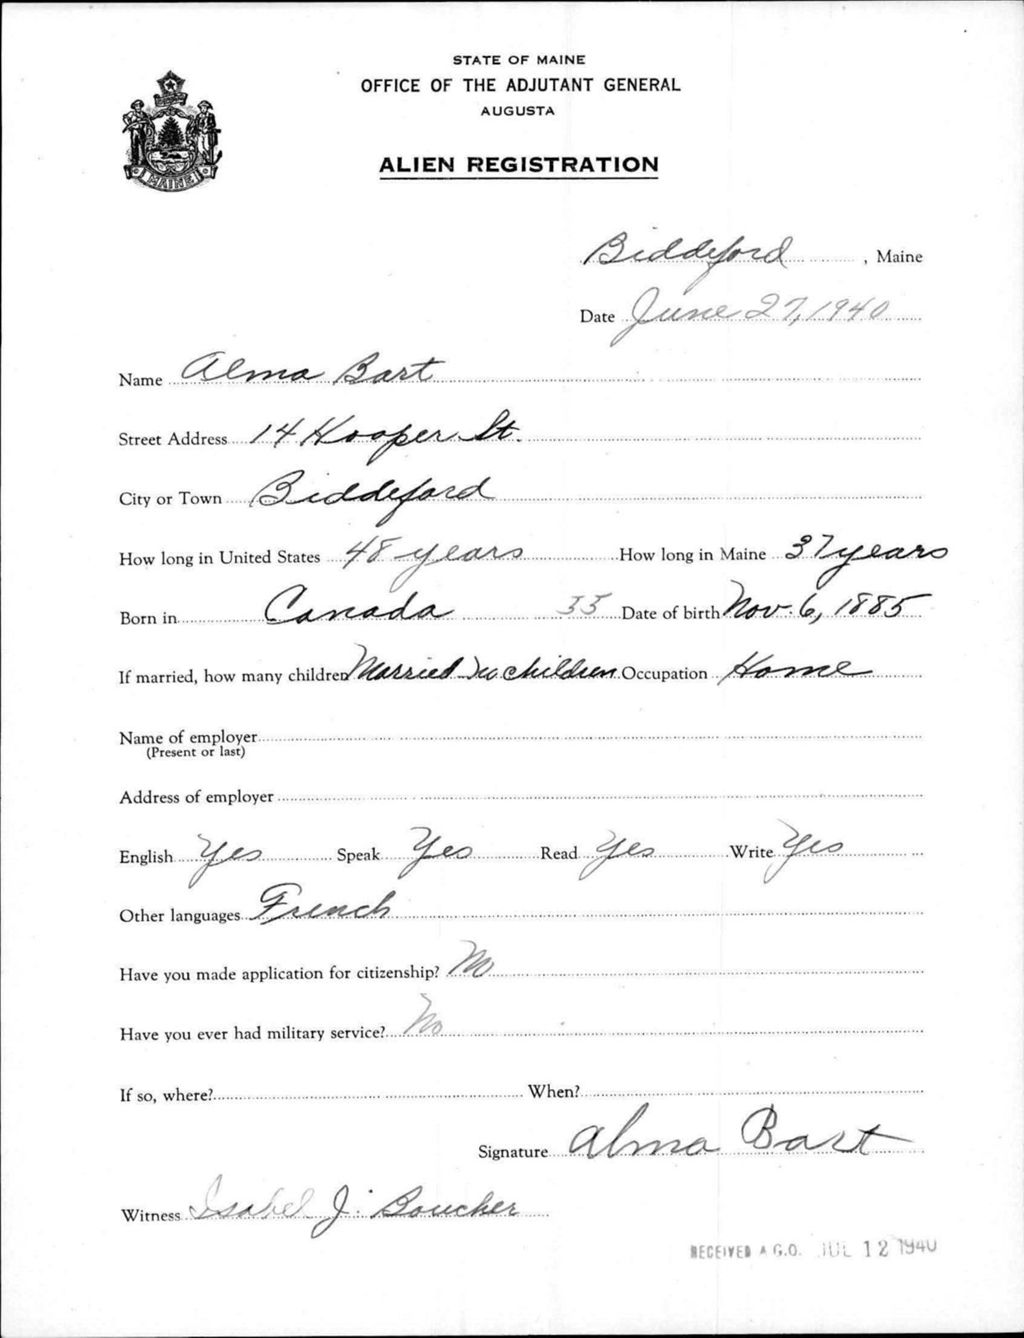 STATE OF MAINE
OFFICE OF THE ADJUTANT GENERAL
AUGUSTA
ALIEN REGISTRATION
MAINE
Biddeford, Maine
Date June 27, 1940
Name Alma Bart
Street Address 14 Hooper St.
City or Town Biddeford
How long in United States 48 years How long in Maine 37 years
Born in Canada 33 Date of birth Nov. 6, 1885
If married, how many children Married children Occupation Home
Name of employer
(Present or last)
Address of employer
English Yes Speak Yes Read Yes Write Yes
Other languages French
Have you made application for citizenship? No
Have you ever had military service? No
If so, where? When?
Signature Alma Bart
Witness Isabel J. Boucher
RECEIVED A.G.O. JUL 12 1940